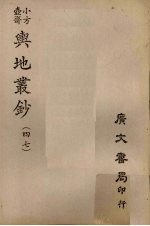 小方壺齋
輿地叢鈔
(四七)
廣文書局印行